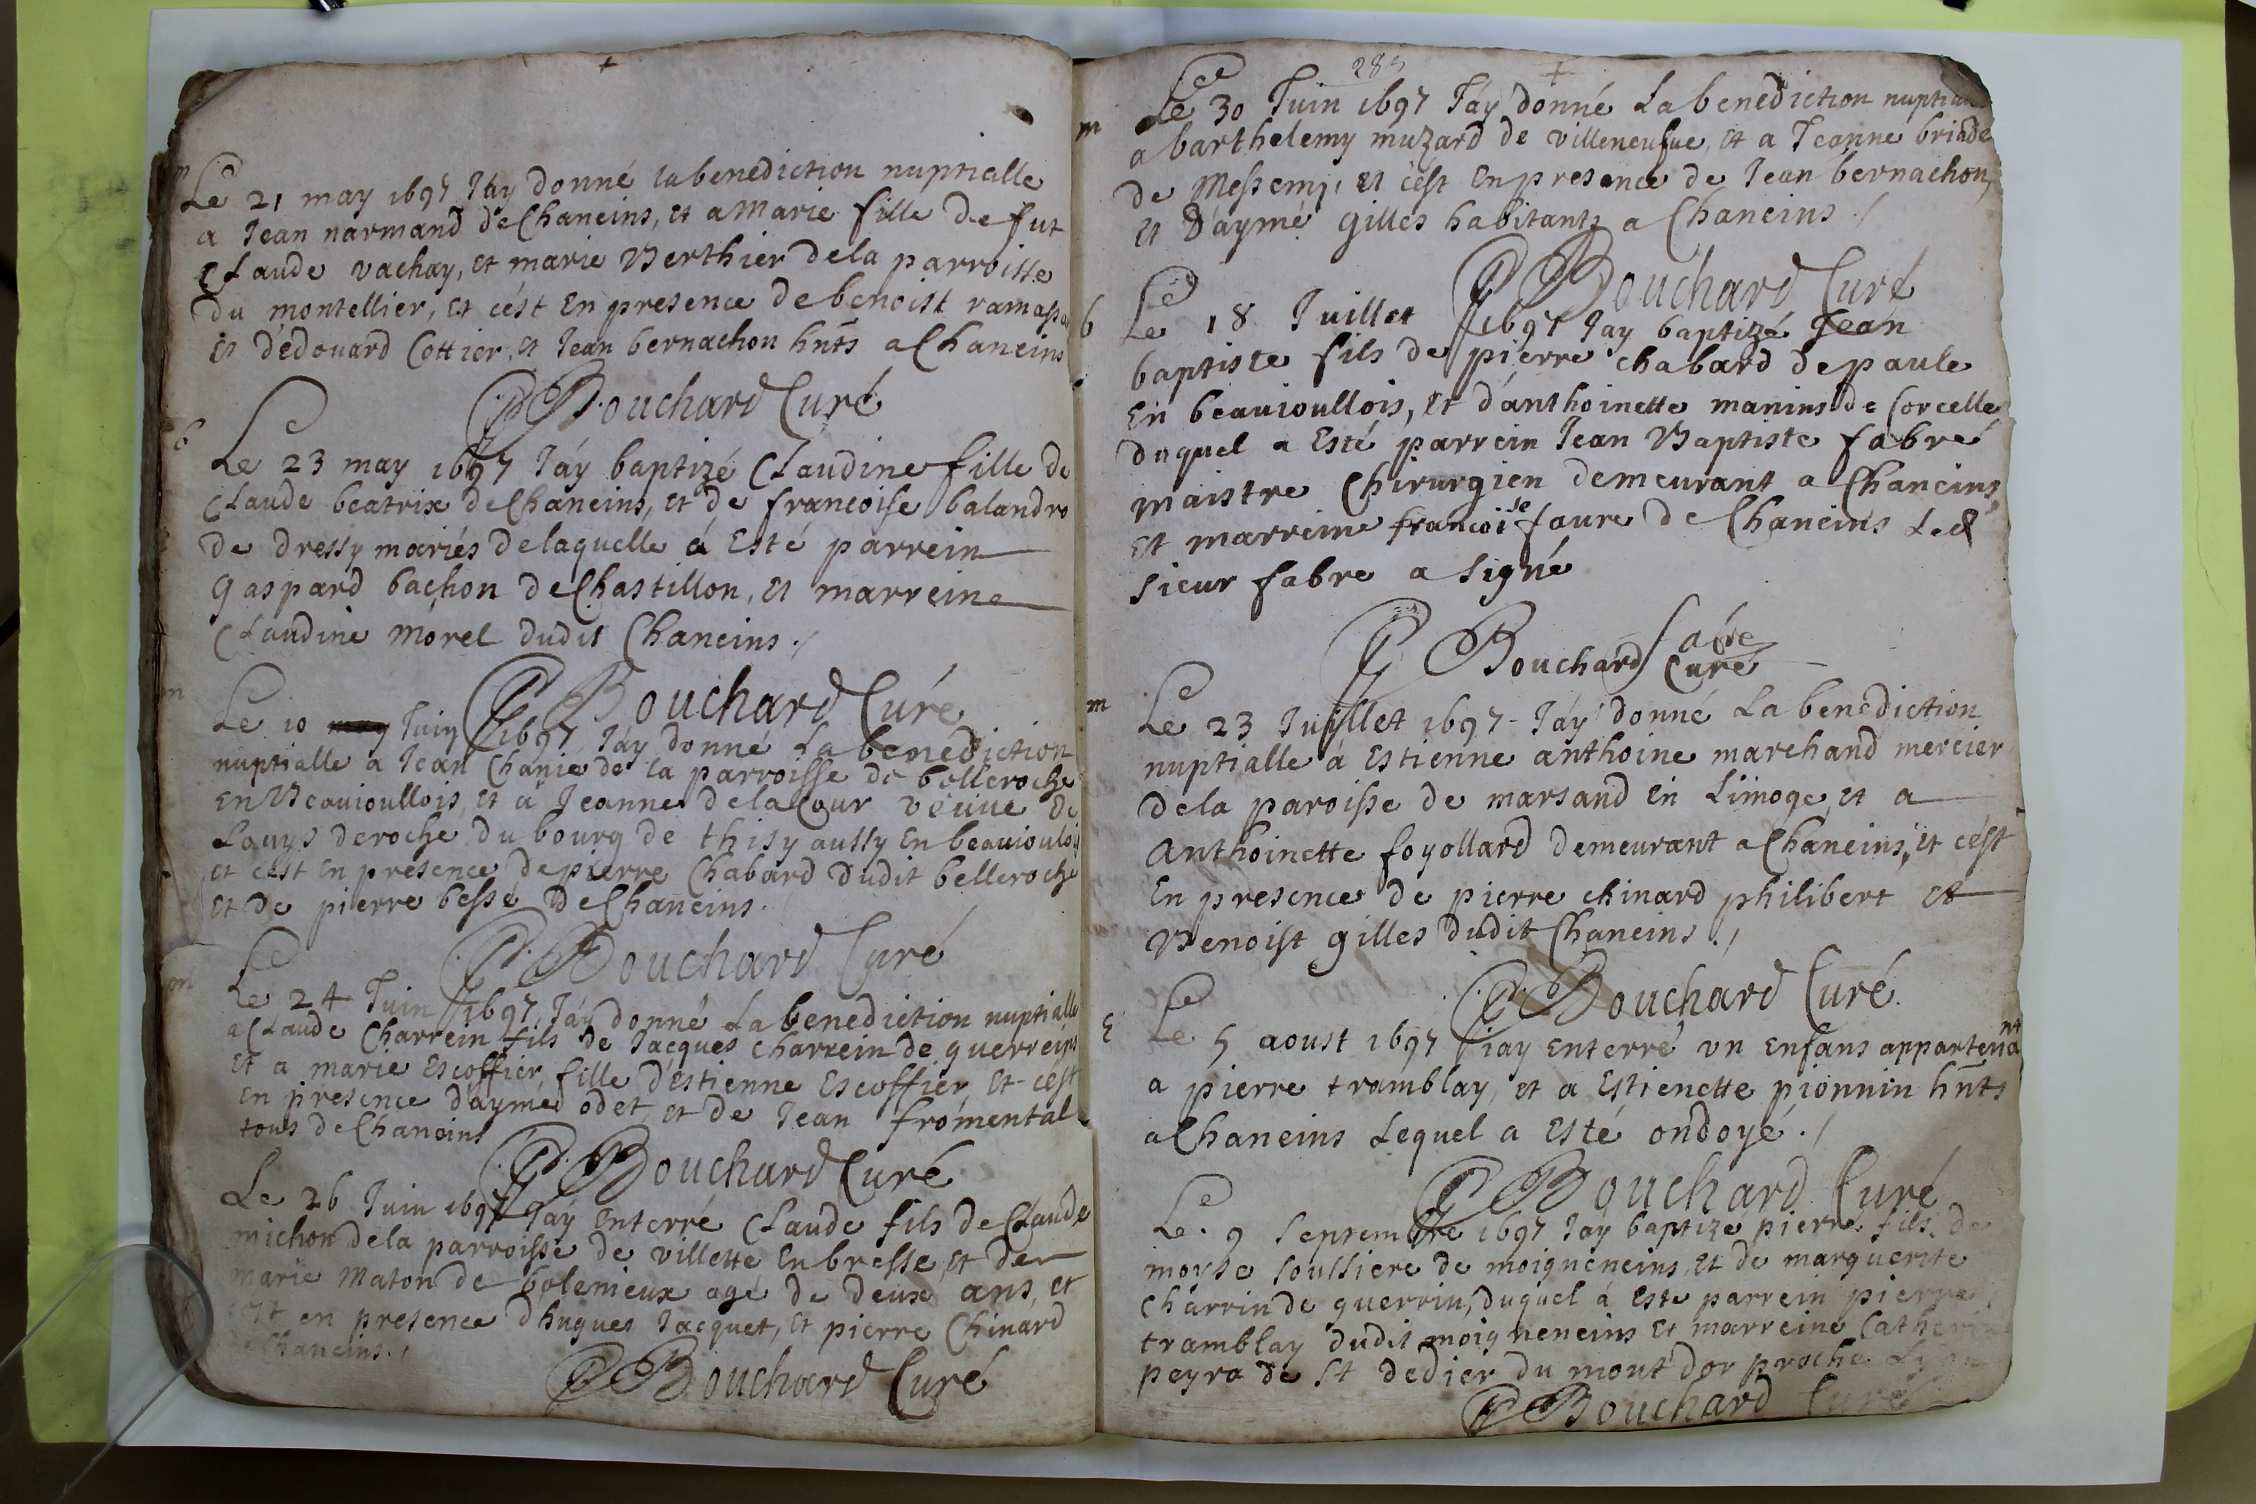 m
Le 21 may 1697 Jáy donné la benediction nuptialle
a Jean narmand de Chaneins, et a Marie fille de fut
Claude vachay, et marie Berthier de la parroisse
du montellier, et cést En presence de benoist
et dédouard Cottier, et Jean bernachon hnts a Chaneins
P Bouchard Curé
b
Le 23 may 1697 Jáy baptizé Claudine fille de
Claude beatrix de Chaneins, et de francoise balandro
de dressy mariés de laquelle á Esté parrein
gaspard bachon de Chastillon, et marreine
Claudine morel dudit Chaneins ./
P Bouchard Curé
m
Le 10 Juin 1697 Jáy donné La benediction
nuptialle a Jean Chanie de la parroisse de belleroche
En Beauioullois, et á Jeanne de la Cour veuue de
Louys deroche du bourg de thisy aussy En beauioulois
et cést En presence de pierre Chabard dudit belleroche
et de pierre besse de Chaneins.
P. Bouchard Curé
m
Le 24 Juin 1697 Jáy donné La benediction nuptialle
a Claude Charrein fils de Jacques Charrein de guerreins
et a marie Escoffier, fille dEstienne Escoffier, et cést
En presence dáymé odet, et de Jean fromental
tous de Chaneins
P. Bouchard Curé
Le 26 Juin 1697 Jáy Enterré Claude fils de Claude
michon de la parroisse de villette En bresse, et de
marie Maton de bolenieux agé de deux ans, et
cést en presence dhugues Jacquet, et pierre Chinard
de Chaneins ./
P Bouchard Curé
285
m
Le 30 Juin 1697 Jáy donné La benediction nuptialle
a barthelemy muzard de villeneufue, et a Jeanne briade
de Messemy, et cést En presence de Jean bernachon,
et dáymé gilles habitants a Chaneins ./
P Bouchard Curé
b
Le 18 Juillet 1697 Jay baptizé Jean
baptiste fils de pierre chabard de paule
En beauioullois, et dánthoinette manins de Corcelle
duquel a Esté parrein Jean Baptiste fabre
maistre Chirurgien demeurant a Chaneins,
et marreine francoise faure de Chaneins Led
sieur fabre a signé
fabre
P Bouchard Curé
m
Le 23 Juillet 1697 - Jáy donné La benediction
nuptialle á Estienne anthoine marchand mercier
de la paroisse de marsand En Limoge, et a
Anthoinette foyollard demeurant a Chaneins, et cést
En presence de pierre chinard philibert et
Benoist gilles dudit Chaneins ./
P. Bouchard Curé.
E
Le 5 aoust 1697 jay Enterré vn Enfans appartenant
a pierre tramblay, et a Estienette pionnin hnts
a Chaneins Lequel a Esté ondoyé ./
P Bouchard Curé
Le 9 septembre 1697 Jáy baptizé pierre fils de
moyse soussiere de moigneneins, et de marguerite
Charrin de guerrin, duquel á Esté parrein pierre
tramblay dudit moigneneins et marreine Catherine
peyra de st dedier du mont dor proche Lyon
P Bouchard Curé